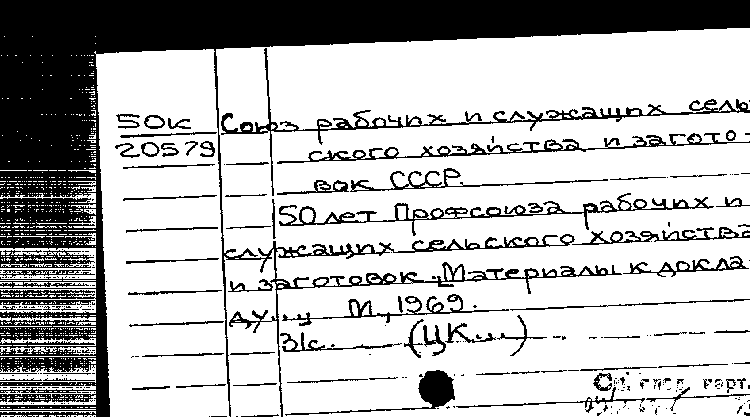 50к Союз рабочих и служащих сель
20579 ского хозяйства и загото-
вок СССР.
50 лет Профсоюза рабочих и
служащих сельского хозяйства
и заготовок „Материалы к докла
ду..." М., 1969.
31с. (ЦК...)
карт.